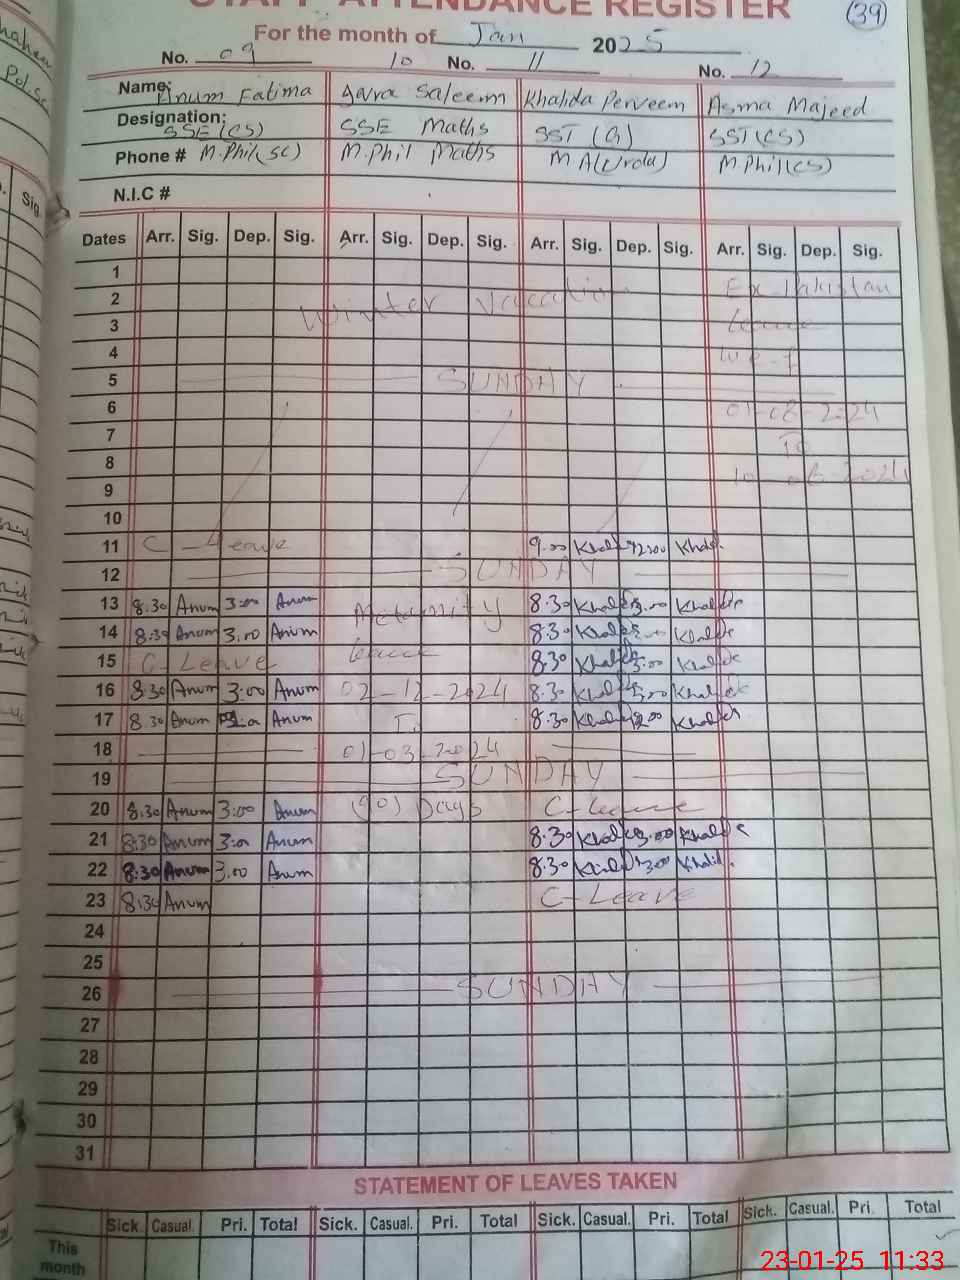 STAFF ATTENDANCE REGISTER
(39)
For the month of Jan 2025
No. 09 10 No. 11 No. 12
Name: Anum Fatima Saleem Khalida Perveem Asma Majeed
Designation: SSE (CS) SSE Maths SST (G) SST (CS)
Phone # M.Phil(SC) M.Phil Maths M.A(Urdu) M.Phil(CS)
N.I.C #
Dates Arr. Sig. Dep. Sig. Arr. Sig. Dep. Sig. Arr. Sig. Dep. Sig. Arr. Sig. Dep. Sig.
1 Ex-Pakistan
2 Winter Vacation
3 Leave
4 w.e.f
5 SUNDAY
6 01-08-2024
7 To
8
9
10
11 C-Leave 9.00 Khalid 12:00 Khalid
12 SUNDAY
13 8:30 Anum 3:00 Anum Maternity 8:30 Khalida 3:00 Khalida
14 8:30 Anum 3.00 Anum Leave 8:30 Khalida Khalida
15 C-Leave 8:30 Khalida 3:00 Khalida
16 8:30 Anum 3:00 Anum 02-12-2024 8:30 Khalida 3:00 Khalida
17 8:30 Anum Anum To 8:30 Khalida 12:00 Khalida
18 01-03-2024
19 SUNDAY
20 8:30 Anum 3:00 Anum (90) Days C-Leave
21 8:30 Anum 3:00 Anum 8:30 Khalida 3:00 Khalida
22 8:30 Anum 3.00 Anum 8:30 Khalid 3:00 Khalid
23 8:30 Anum C-Leave
24
25
26 SUNDAY
27
28
29
30
31
STATEMENT OF LEAVES TAKEN
Sick. Casual. Pri. Total Sick. Casual. Pri. Total Sick. Casual. Pri. Total Sick. Casual. Pri. Total
This
month
23-01-25 11:33